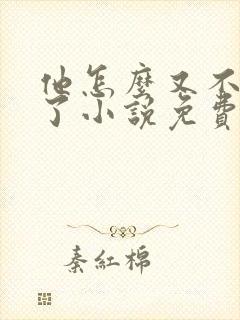 他怎麼又不
了小說免費
秦紅棉